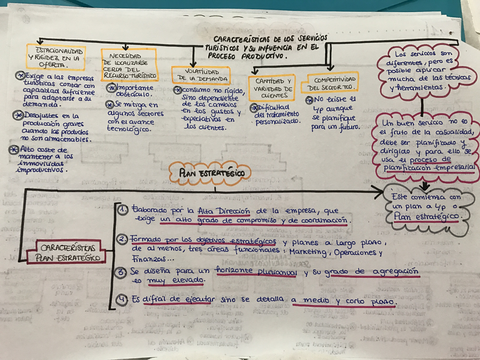 CARACTERÍSTICAS DE LOS SERVICIOS
TURÍSTICOS Y SU INFLUENCIA EN EL
PROCESO PRODUCTIVO.
ESTACIONALIDAD
Y RIGIDEZ EN LA
OFERTA.
Exige a las empresas
turísticas contar con
capacidad suficiente
para adaptarse a su
demanda.
Desajustes en la
producción graves
cuando los productos
no son almacenables.
Alto coste de
mantener a los
inmovilizados
improductivos.
NECESIDAD
DE LOCALIZARSE
CERCA DEL
RECURSO TURÍSTICO
Importante
obstáculo.
Se mitiga en
algunos sectores
con el avance
tecnológico.
VOLATILIDAD
DE LA DEMANDA
Consumo no rígido,
sino dependiente
de los cambios
en los gustos y
expectativas en
los clientes.
CANTIDAD Y
VARIEDAD DE
CLIENTES
Dificultad
de tratamiento
personalizado.
COMPETITIVIDAD
DEL SECTOR TCO
No existe tj
que aunque
se planifique
para un futuro.
Los servicios son
diferentes, pero es
posible aplicar
mucha de las técnicas
y herramientas.
Un buen servicio no es
el fruto de la casualidad,
debe ser planificado y
dirigido y para ello se
usa el proceso de
planificación empresarial
Este comienza con
un plan a l/p
Plan estratégico.
PLAN ESTRATÉGICO
CARACTERÍSTICAS
PLAN ESTRATÉGICO
1 Elaborado por la Alta Dirección de la empresa, que
exige un alto grado de compromiso y de coordinación.
2 Formado por los objetivos estratégicos y planes a largo plazo,
de al menos, tres áreas funcionales: Marketing, Operaciones y
Finanzas...
3 Se diseña para un horizonte plurianual y su grado de agregación
es muy elevado.
4 Es difícil de ejecutar sino se detalla a medio y corto plazo.